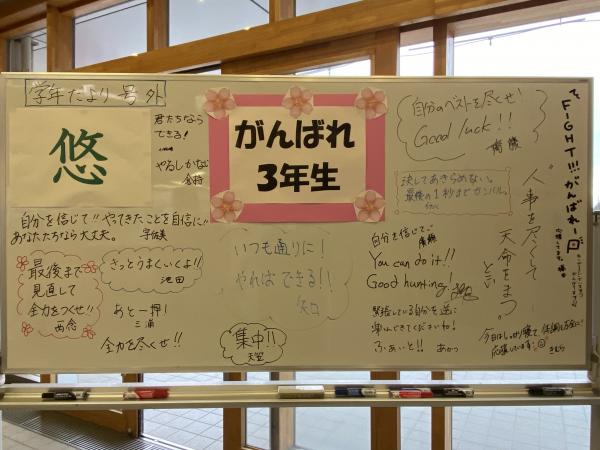 学年だより 号外
悠
君たちなら
できる!
やるしかない
がんばれ
3年生
自分のベストを尽くせ!
Good luck!!!
FIGHT!!! がんばれー
決してあきらめない。
最後の1秒までガンバル。
人事を尽くして
天命をまつ。
という
自分を信じて!! やってきたことを自信に!!
あなたたちなら大丈夫。
最後まで
見直して
全力をつくせ!!
きっとうまくいくよ!!
池田
あと一押し!
三浦
全力を尽くせ!!
いつも通りに!
やればできる!!
矢口
集中!!
自分を信じて、
You can do it!!
Good hunting!
緊張している自分を逆に
楽しんできてくださいね!
ふぁいと!! あかつ
今日はしっかり寝て、体調を万全に!
応援しています。
きむら